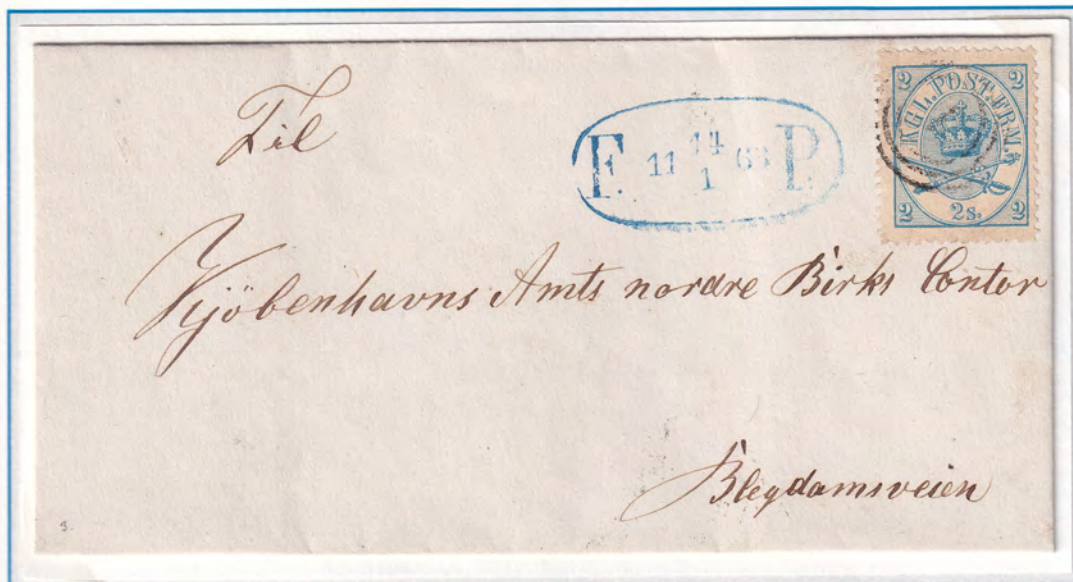 Til
F. 1 11 14/1 68 P.
2 KGL. POST. FRM. 2
2 2 s. 2
Kjöbenhavns Amts nordre Birks Contor
Blegdamsveien
3.